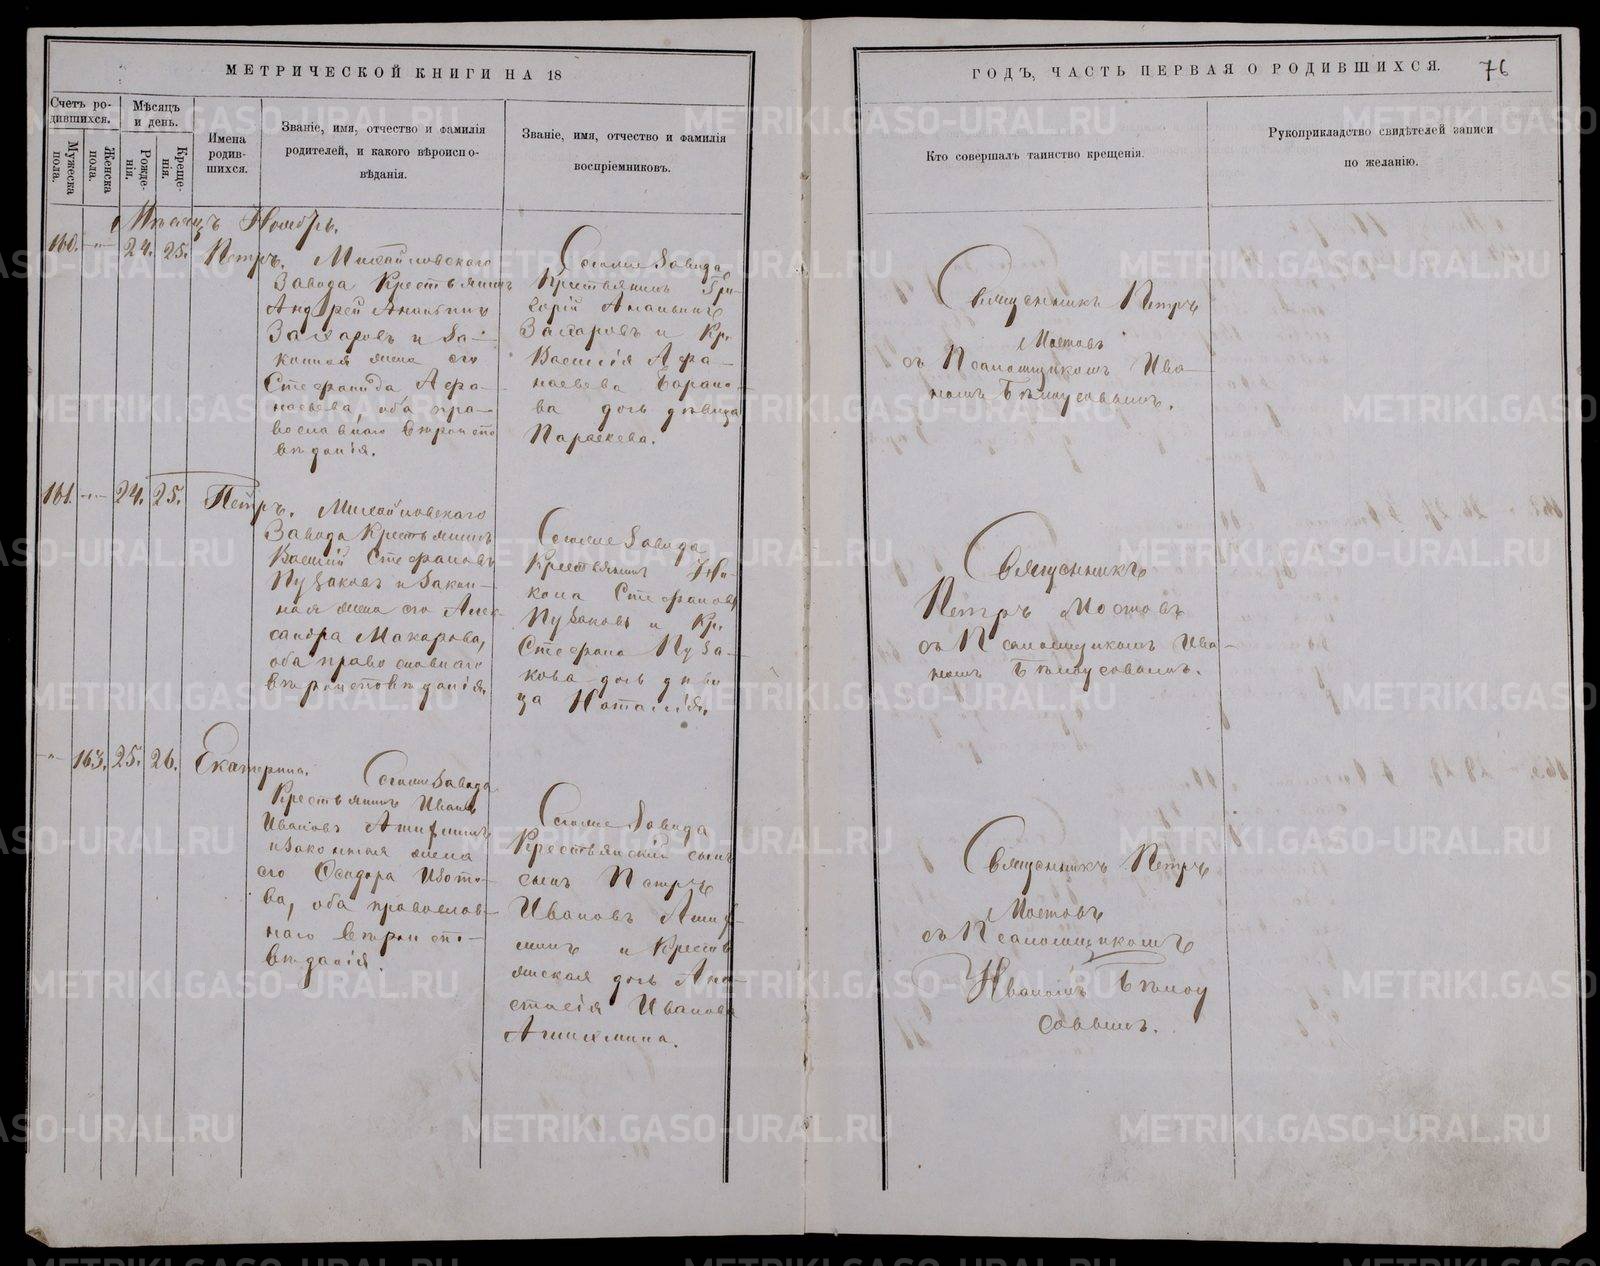 МЕТРИЧЕСКОЙ КНИГИ НА 18
Счетъ ро-
дившихся.
Мужеска
пола.
Женска
пола.
Мѣсяцъ
и день.
Рожде-
нія.
Креще-
нія.
Имена
родив-
шихся.
Званіе, имя, отчество и фамилія
родителей, и какого вѣроиспо-
вѣданія.
Званіе, имя, отчество и фамилія
воспріемниковъ.
Мѣсяцъ Ноябрь.
160. 24. 25. Петръ.
Михайловскаго
Завода Крестьянинъ
Андрей Ананьинъ
Захаровъ и За-
конная жена его
Стефанида Афа-
насьева, оба пра-
вославнаго вѣроиспо
вѣданія.
Тогоже Завода
Крестьянинъ Гри-
горій Ананьинъ
Захаровъ и Кр.
Василія Афа-
насьева Барано-
ва дочь дѣвица
Параскева.
161. 24. 25. Петръ.
Михайловскаго
Завода Крестьянинъ
Василій Стефановъ
Пузаковъ и Закон-
ная жена его Алек-
сандра Макарова,
оба православнаго
вѣроисповѣданія.
Тогоже Завода
Крестьянинъ
Стефановъ
Пузаковъ и Кр.
Стефана Пуза-
кова дочь дѣви
ца Наталія.
163. 25. 26. Екатерина.
Тогоже Завода
Крестьянинъ Иванъ
Ивановъ
и Законная жена
его Феодора Изото-
ва, оба православ-
наго вѣроиспо-
вѣданія.
Тогоже Завода
Крестьянскій сынъ
сынъ Петръ
Ивановъ
и Крестъ
янская дочь Ана-
стасія Иванова
ГОДЪ, ЧАСТЬ ПЕРВАЯ О РОДИВШИХСЯ.
76
Кто совершалъ таинство крещенія.
Рукоприкладство свидѣтелей записи
по желанію.
Священникъ Петръ
Мостовъ
съ Псаломщикомъ Ива-
номъ Бѣлоусовымъ.
Священникъ
Петръ Мостовъ
съ Псаломщикомъ Ива-
номъ Бѣлоусовымъ.
Священникъ Петръ
Мостовъ
съ Псаломщикомъ
Иваномъ Бѣлоу
совымъ.
METRIKI.GASO-URAL.RU